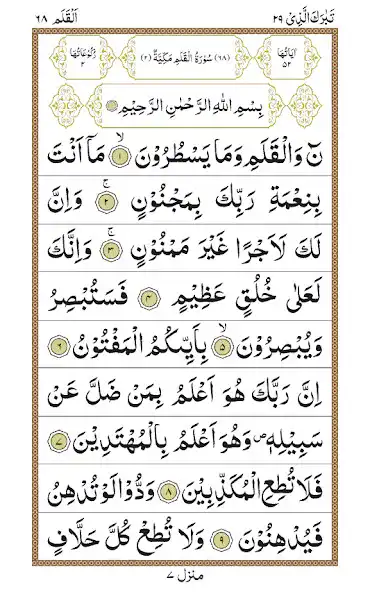 تَبٰرَكَ الَّذِیْ ٢٩
اَلْقَلَم ٦٨
اٰیَاتُهَا ٥٢
(٦٨) سُوْرَةُ الْقَلَمِ مَكِّیَّةٌ (٢)
رُكُوْعَاتُهَا ٢
بِسْمِ اللّٰهِ الرَّحْمٰنِ الرَّحِیْمِ
نٓ وَالْقَلَمِ وَمَا یَسْطُرُوْنَ ۙ﴿١﴾ مَاۤ اَنْتَ
بِنِعْمَةِ رَبِّكَ بِمَجْنُوْنٍ ۚ﴿٢﴾ وَاِنَّ
لَكَ لَاَجْرًا غَیْرَ مَمْنُوْنٍ ۚ﴿٣﴾ وَاِنَّكَ
لَعَلٰی خُلُقٍ عَظِیْمٍ ﴿٤﴾ فَسَتُبْصِرُ
وَیُبْصِرُوْنَ ۙ﴿٥﴾ بِاَىیِّكُمُ الْمَفْتُوْنُ ﴿٦﴾
اِنَّ رَبَّكَ هُوَ اَعْلَمُ بِمَنْ ضَلَّ عَنْ
سَبِیْلِهٖ ۪ وَهُوَ اَعْلَمُ بِالْمُهْتَدِیْنَ ﴿٧﴾
فَلَا تُطِعِ الْمُكَذِّبِیْنَ ﴿٨﴾ وَدُّوْا لَوْ تُدْهِنُ
فَیُدْهِنُوْنَ ﴿٩﴾ وَلَا تُطِعْ كُلَّ حَلَّافٍ
منزل ٧